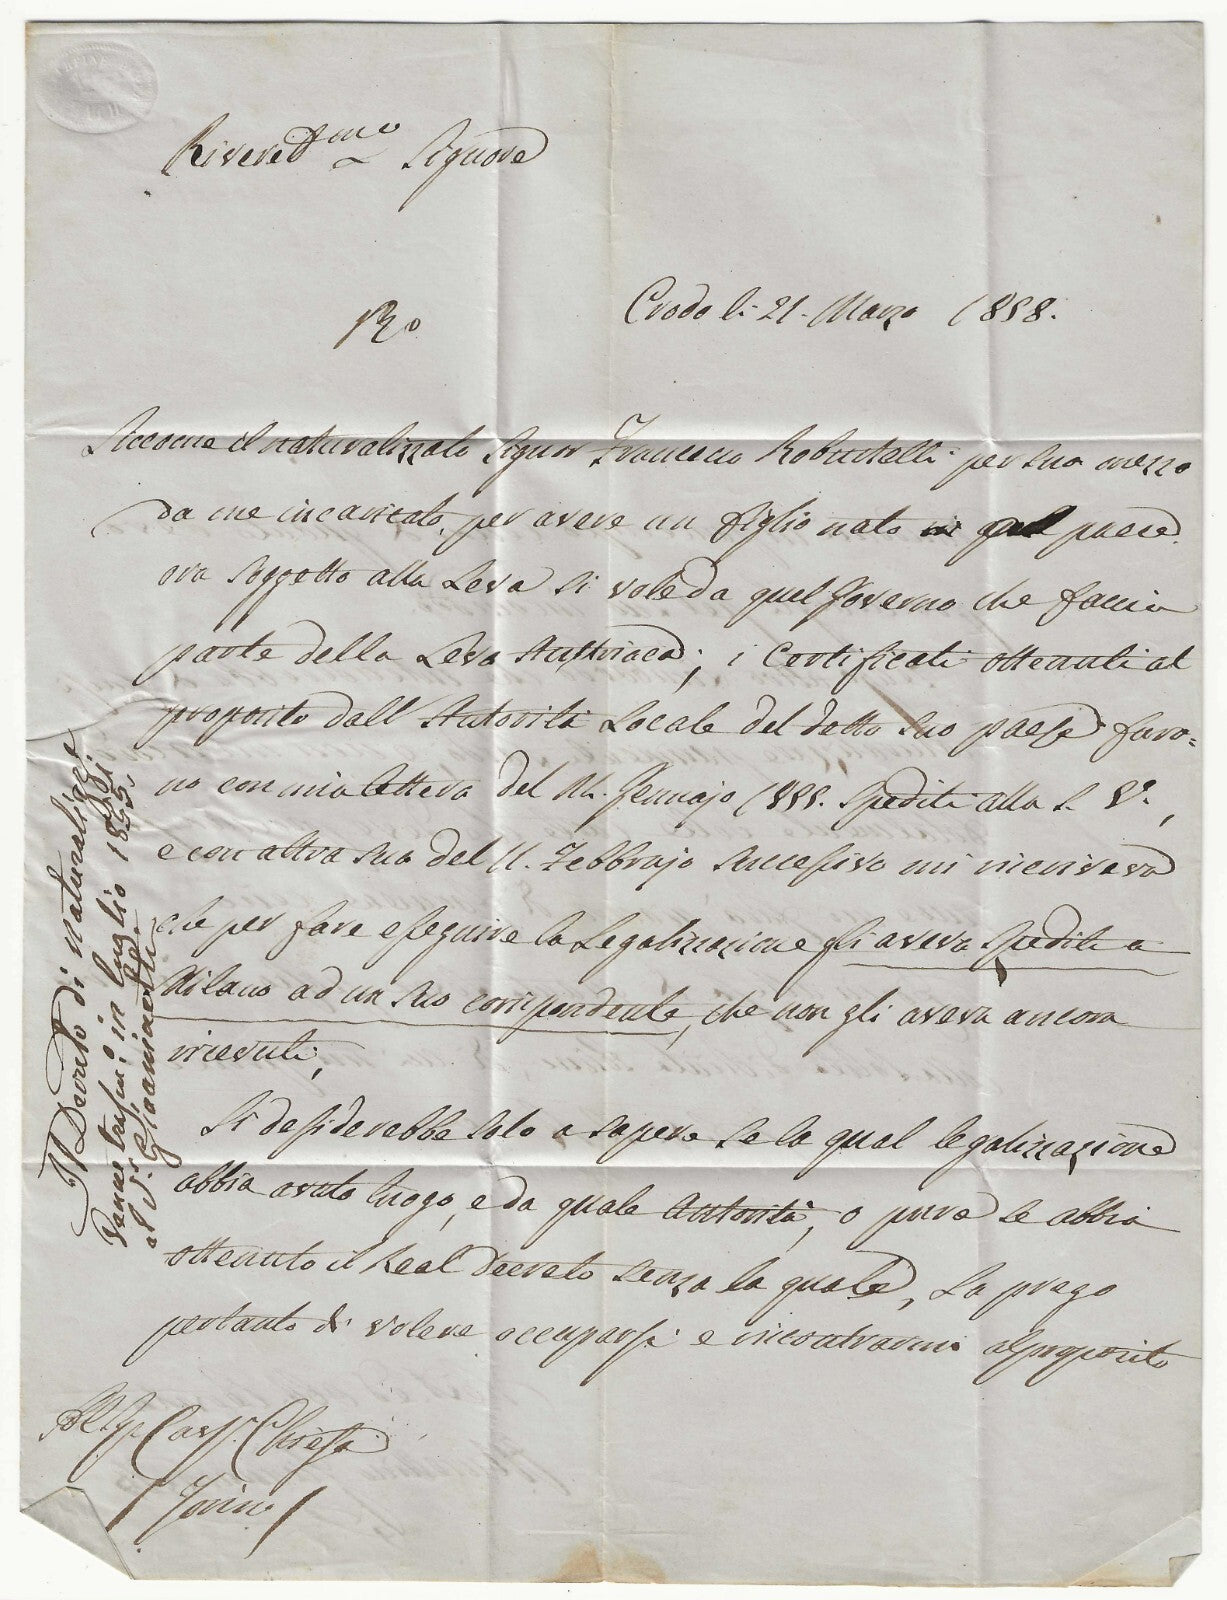 Rivered.mo Signore
Ro
Crodo li 21. Marzo 1858.
Siccome il naturalizzato Signor Francesco Robustelli per suo mezzo
da me incaricato, per avere un figlio nato in quel paese
ora soggetto alla Leva si vole da quel Governo che faccia
parte della Leva Austriaca; i Certificati ottenuti al
proposito dall'Autorità Locale del detto suo paese furo=
no con mia lettera del 14. Gennajo 1855. spediti alla S. V.,
e con altra sua del 11. Febbrajo successivo mi riscriveva
che per fare eseguire la Legalizzazione gli aveva spediti a
Milano ad un suo corrispondente, che non gli aveva ancora
ricevuti,
Si desiderebbe solo a sapere se la qual legalizzazione
abbia avuto luogo, e da quale Autorità, o pure se abbia
ottenuto il Real decreto senza la quale, La prego
pertanto di volere occuparsi e riscontrarmi al proposito
Caus. Chiesa
Torino
Il Decreto di naturalizz.e
venne trasmesso in luglio 1855
al S.r Giovinetti